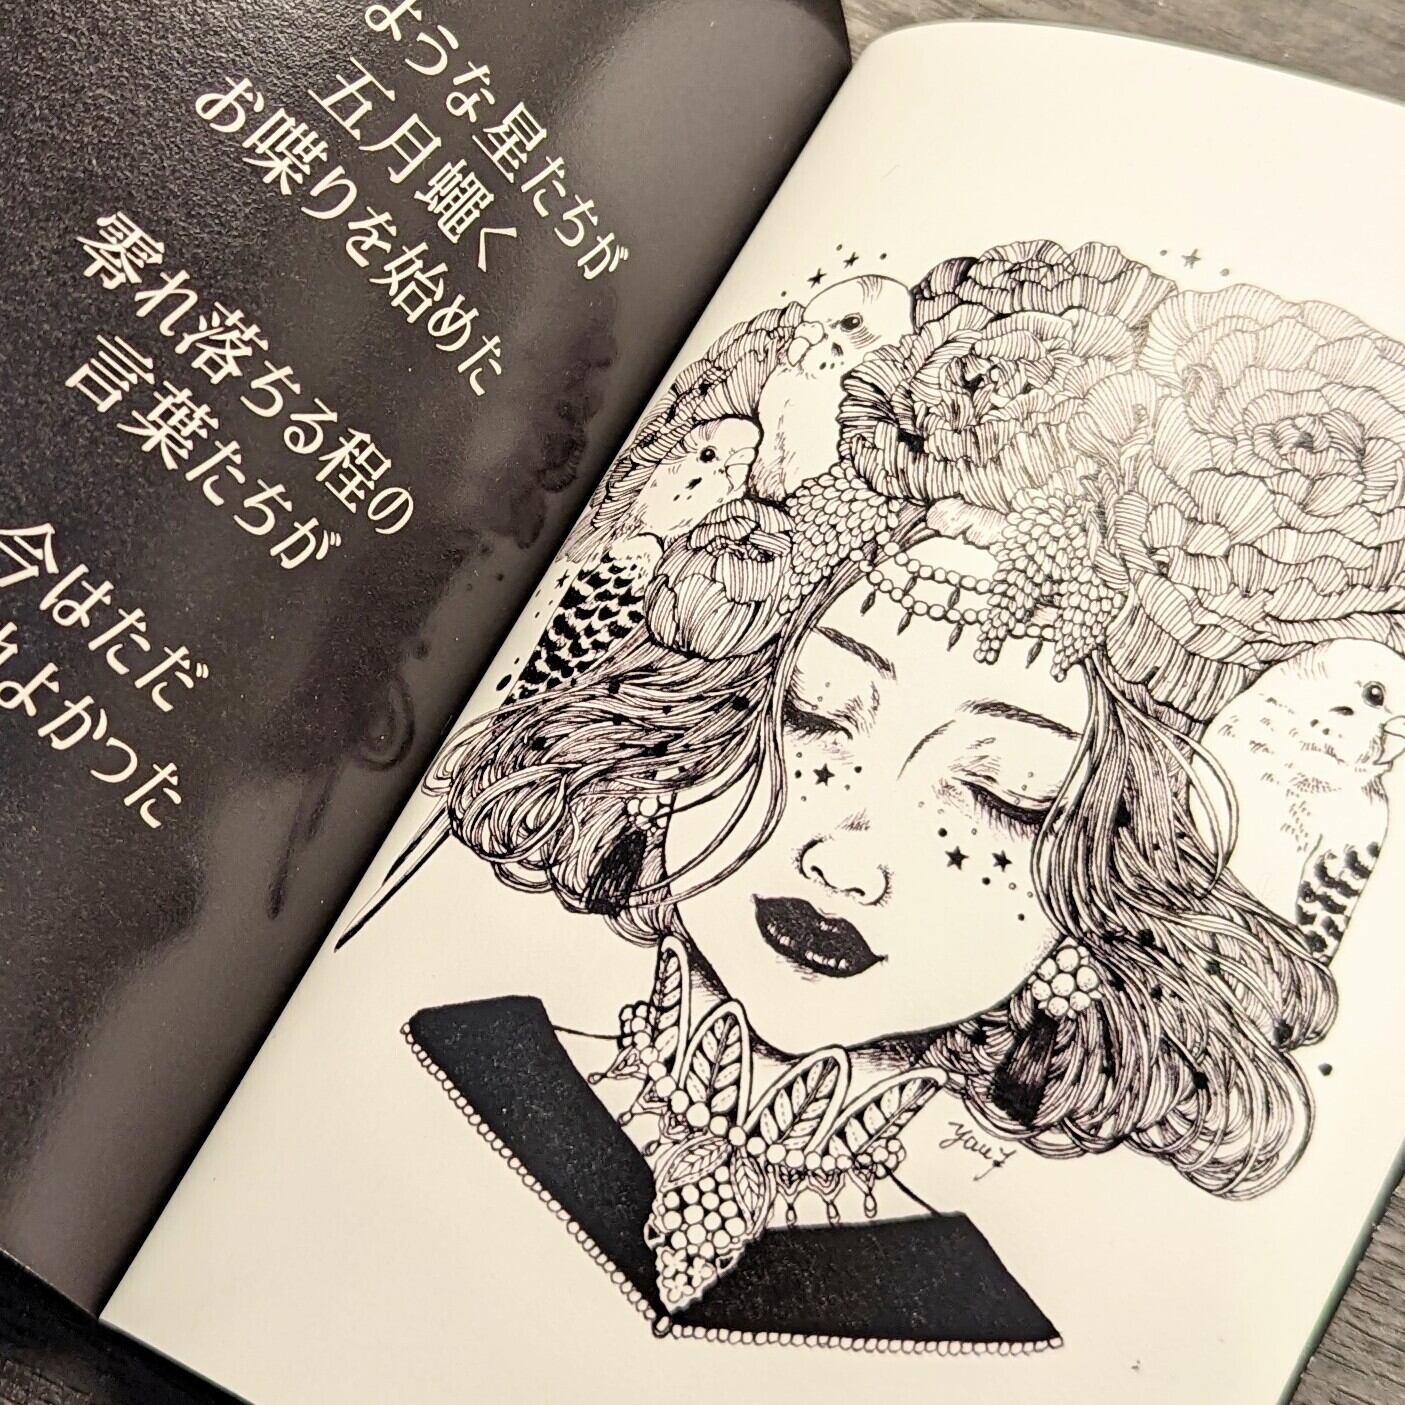 ような星たちが
五月蠅く
お喋りを始めた
零れ落ちる程の
言葉たちが
今はただ
れよかった